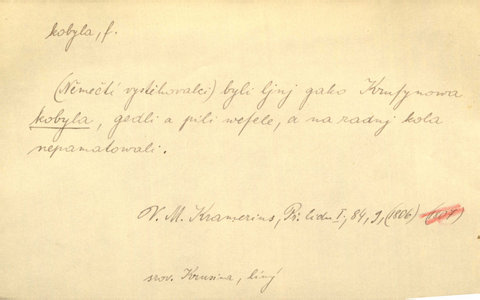 kobyla, f.
(Němečtí vystěhovalci) byli ljnj gako Krussynowa
kobyla, gedli a pili wesele, a na zadnj kola
nepamatowali.
V. M. Kramerius, Př. lidu I, 84, 9, (1806)
srov. Krusina, líný